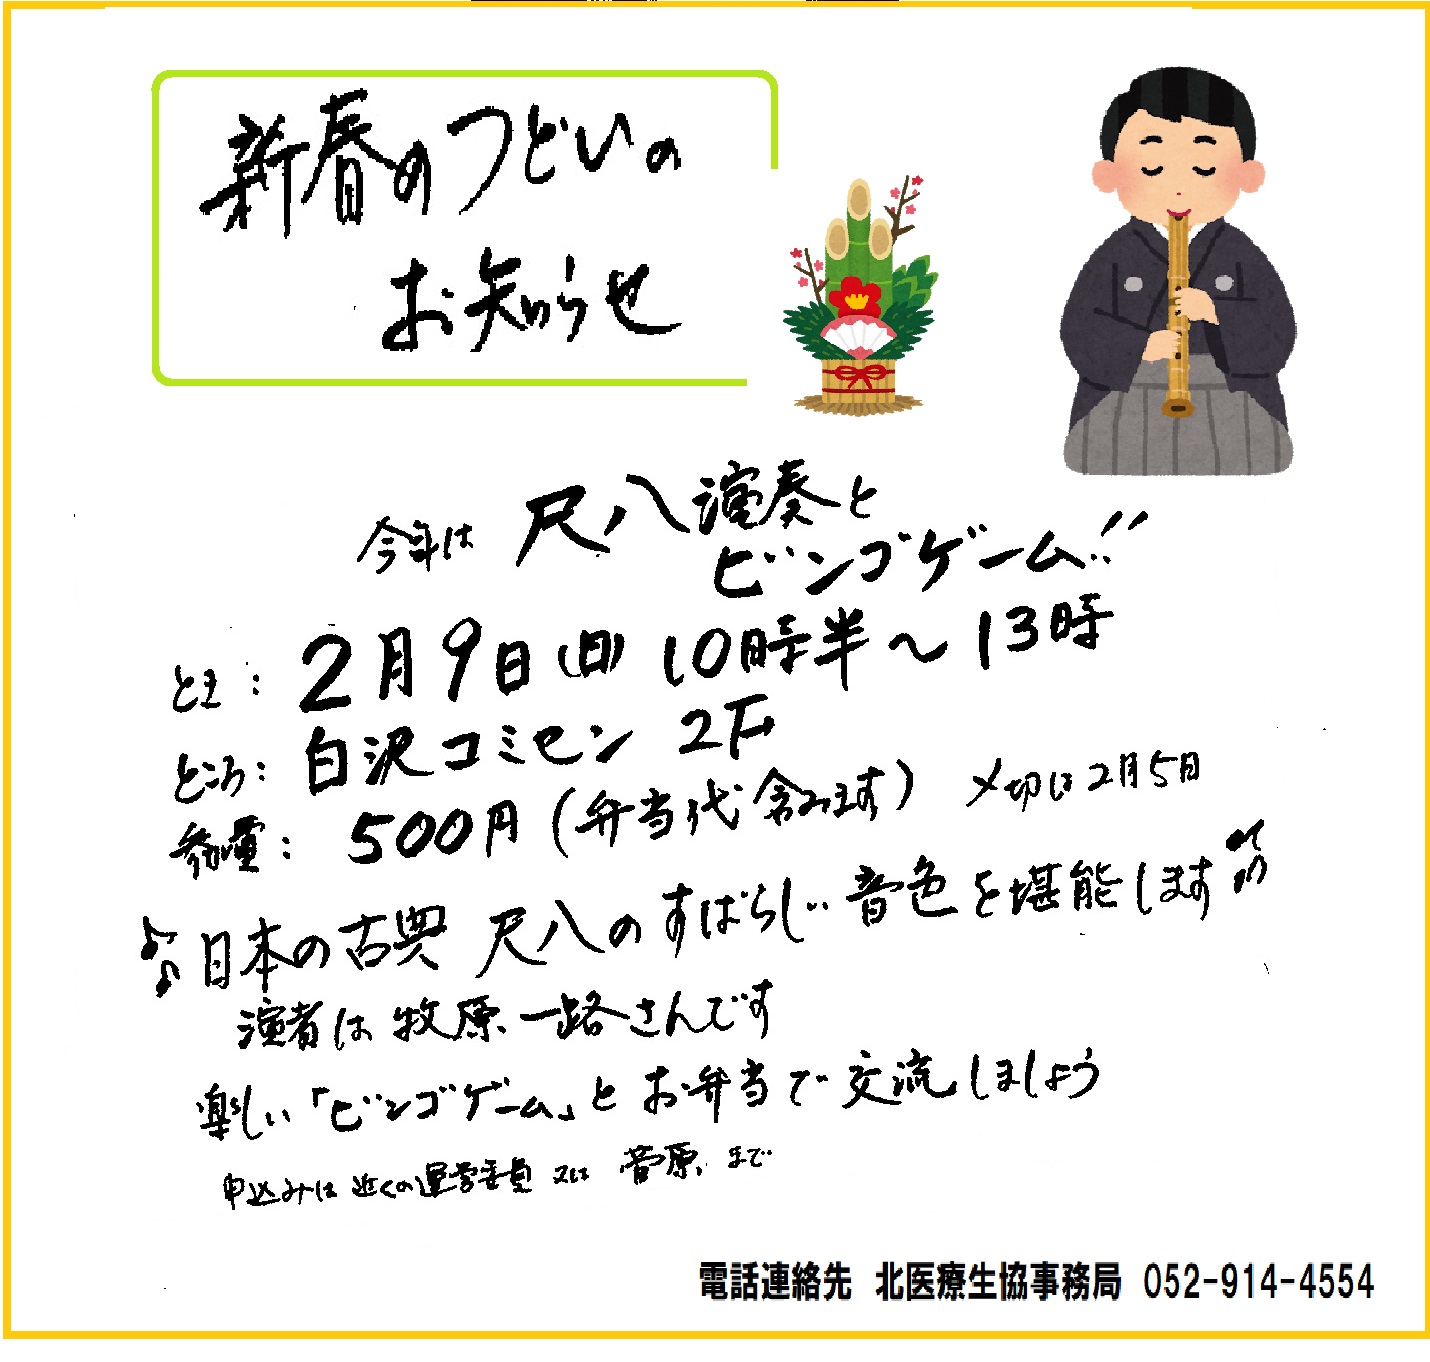 新春のつどいの
お知らせ
今年は 尺八演奏と
ビンゴゲーム!!
とき： 2月9日(日) 10時半～13時
ところ： 白沢コミセン 2F
参加費： 500円(弁当代含みます) 〆切は2月5日
♪日本の古典 尺八のすばらしい音色を堪能します♪
演者は牧原一路さんです
楽しい「ビンゴゲーム」とお弁当で交流しましょう
申込みは近くの運営委員又は 菅原まで
電話連絡先 北医療生協事務局 052-914-4554